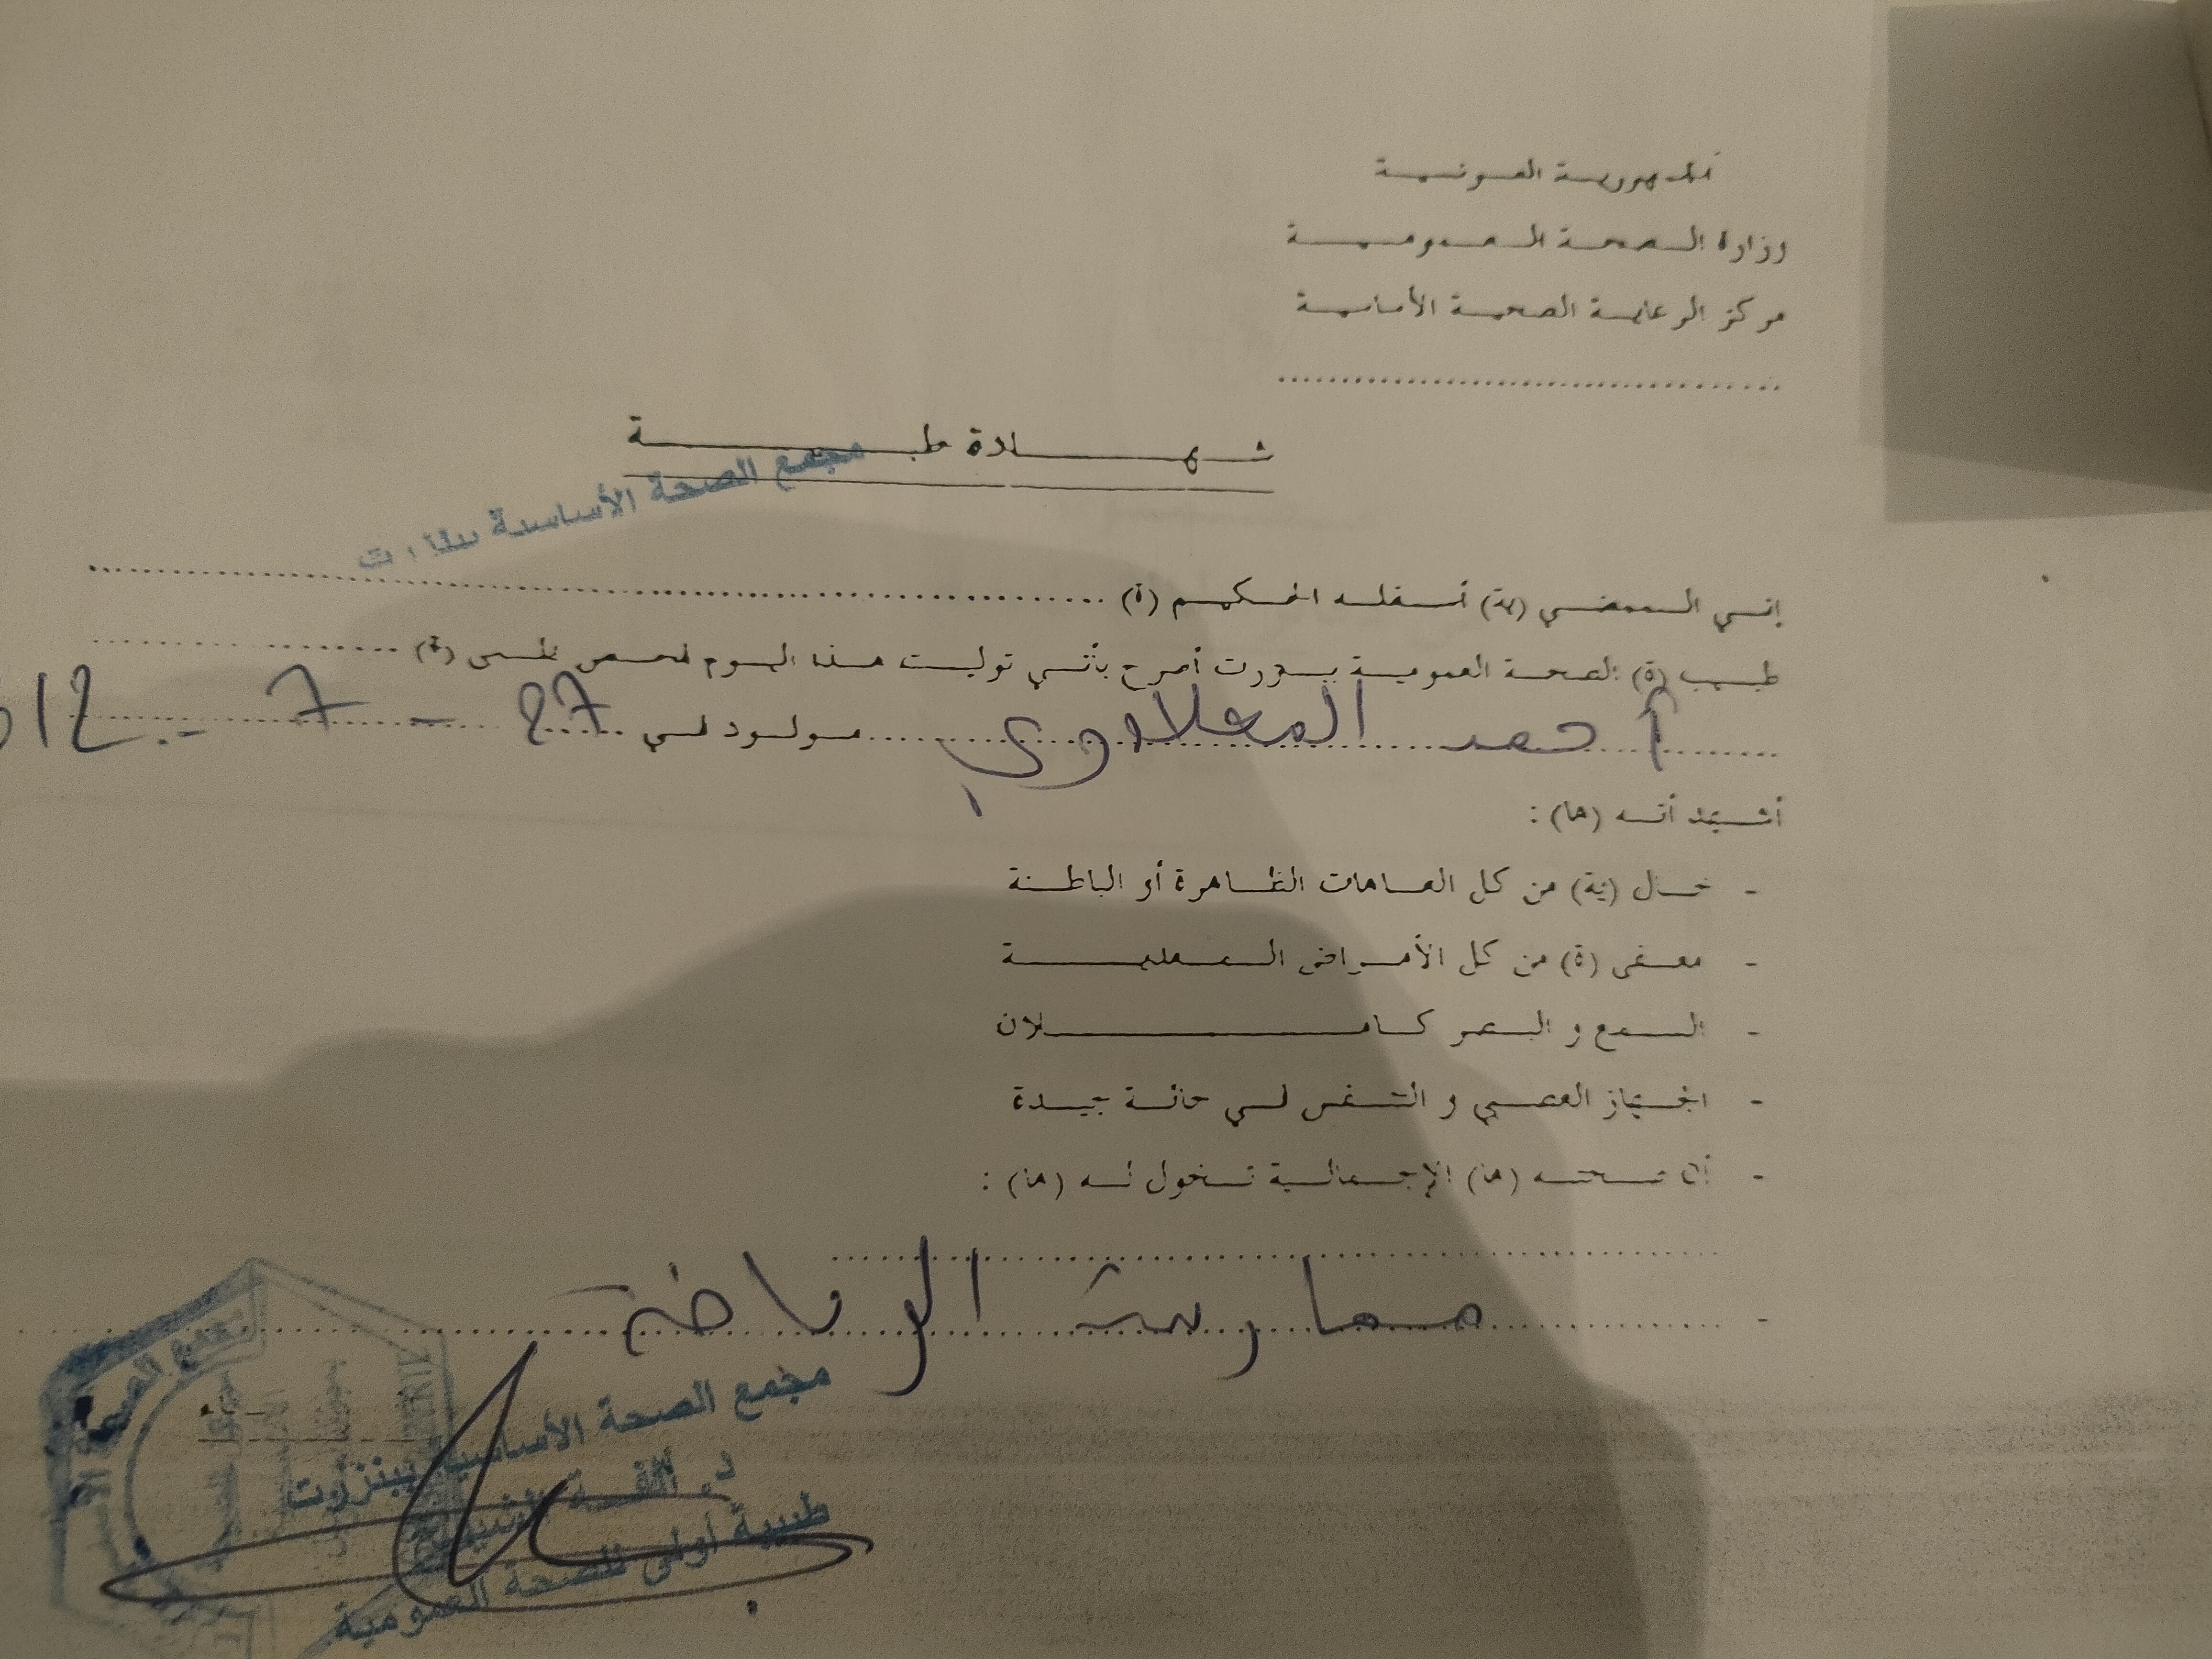 الجمهورية التونسية
وزارة الصحة العمومية
مركز الرعاية الصحية الأساسية
شهادة طبية
مجمع الصحة الأساسية ببنزرت
إني الممضي (ية) أسفله الحكيم (ة)
طبيب (ة) الصحة العمومية ببنزرت أصرح بأنني توليت هذا اليوم فحص طبي (ة)
أحمد المعلاوي مولود في 27 - 7 -
أشهد أنه (ها) :
- خال (ية) من كل العاهات الظاهرة أو الباطنة
- معفى (ة) من كل الأمراض المعدية
- السمع و البصر كاملان
- الجهاز العصبي و التنفس في حالة جيدة
- أن صحته (ها) الإجمالية تخول له (ها) :
- ممارسة الرياضة
مجمع الصحة الأساسية ببنزرت
د. ألفة
طبيبة أولى للصحة العمومية